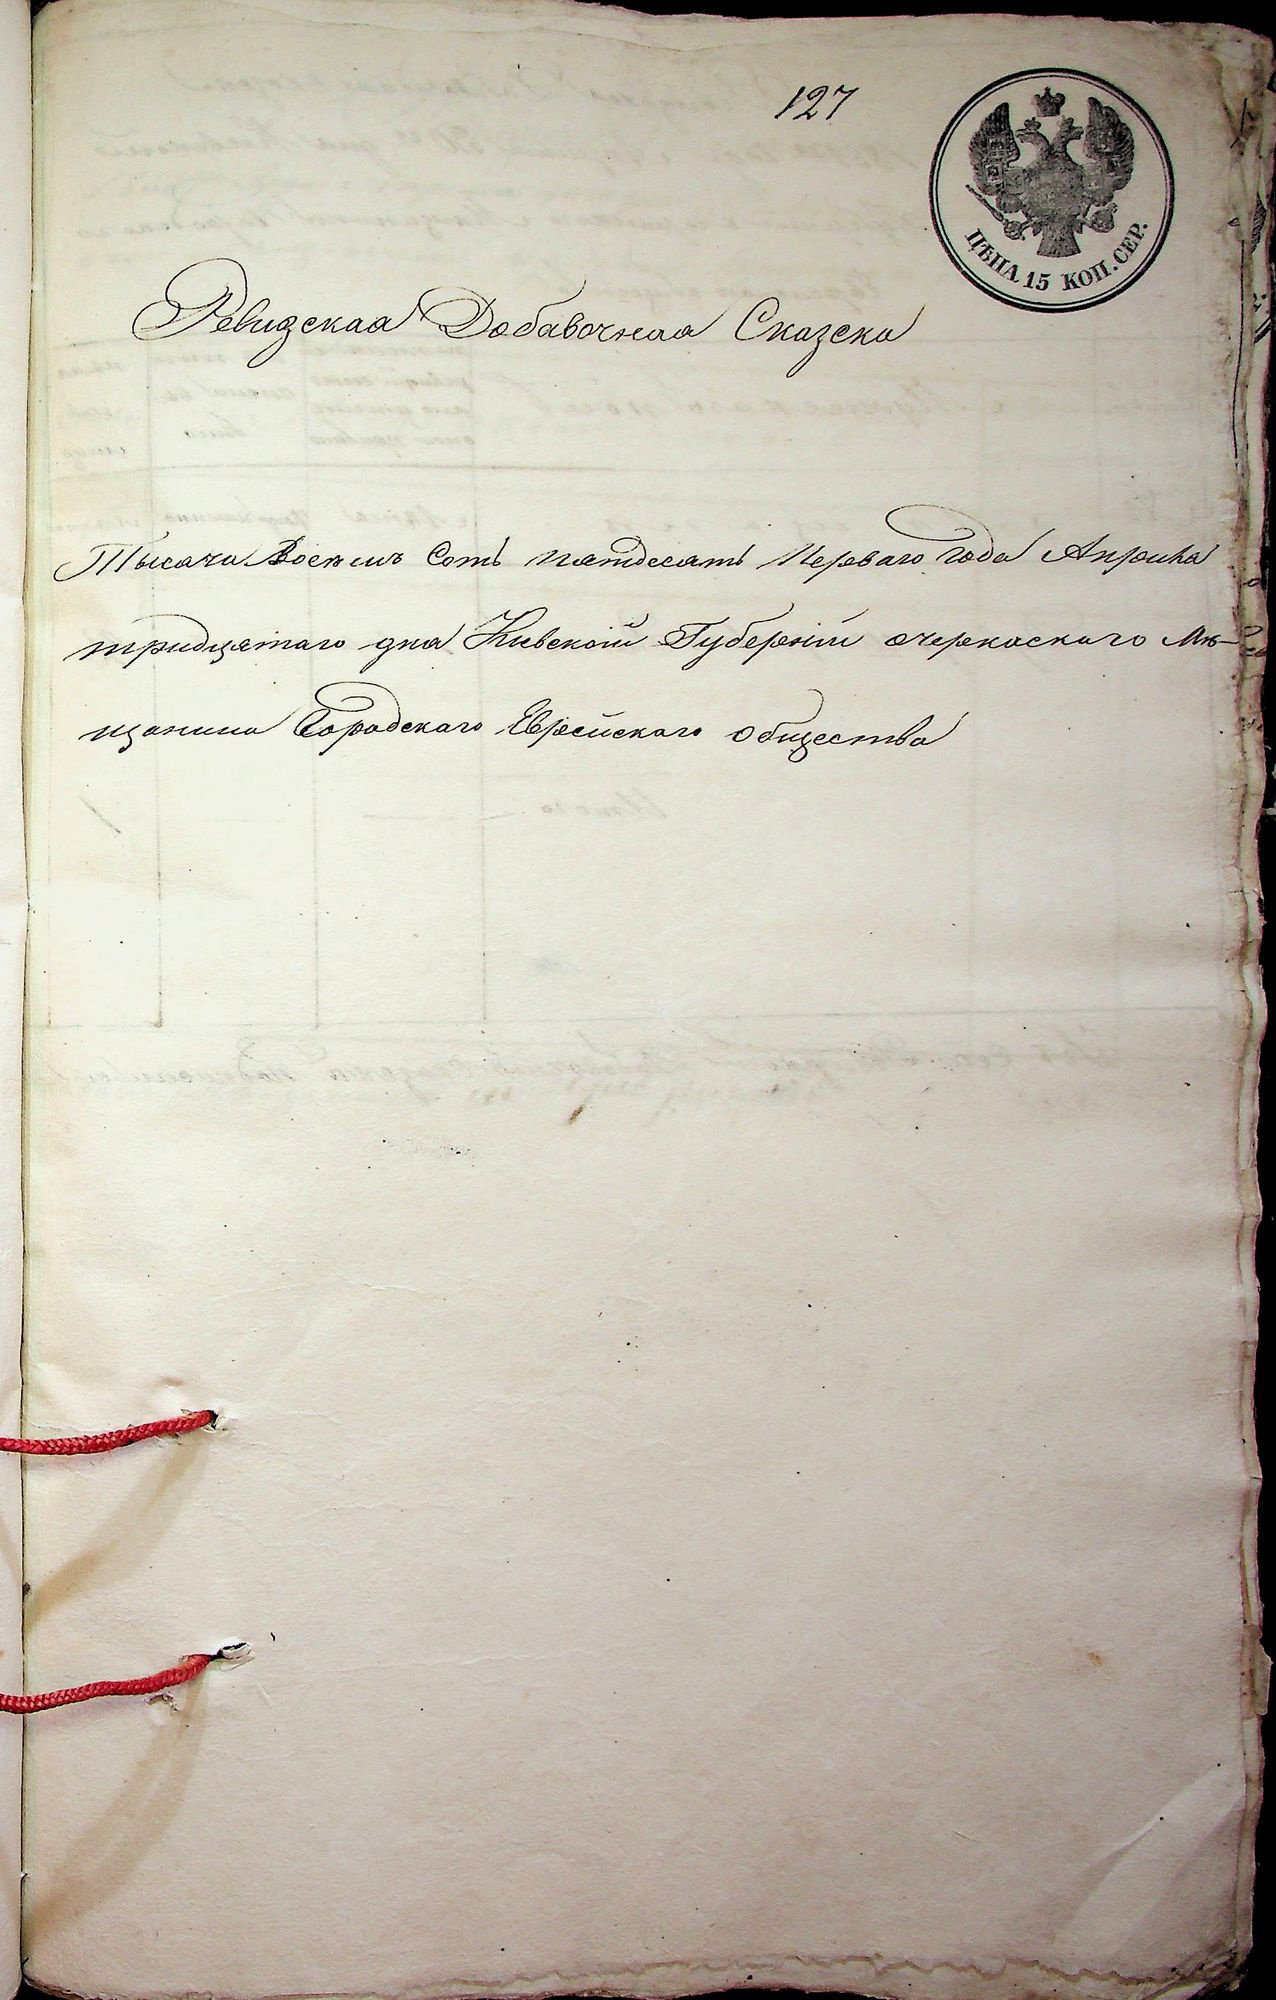 127
ЦѢНА 15 КОП. СЕР.
Ревизская Добавочная Сказска
Тысяча Восемь Сотъ пятдесятъ Перваго года Апреля
тридцятаго дня Киевской Губерніи очеркаскаго Мѣ-
щанина Городскаго Еврейскаго общества